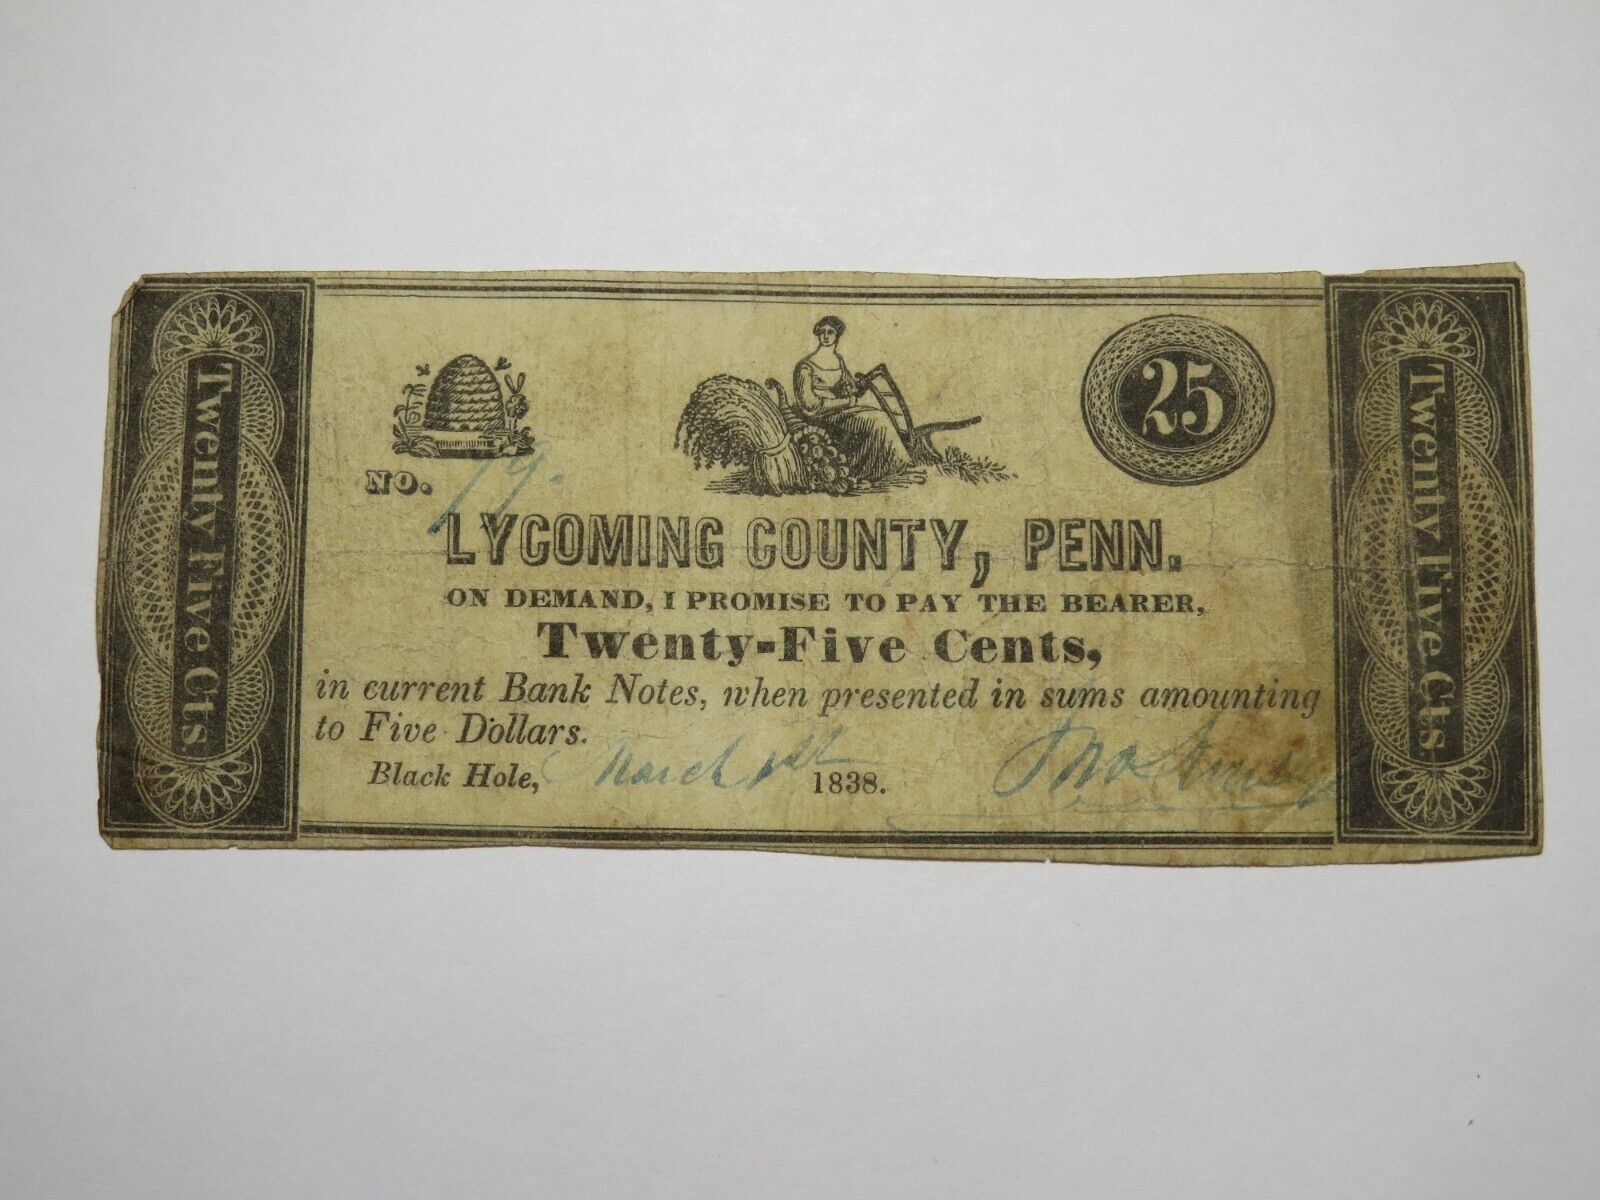 Twenty Five Cts
25
NO. 79.
LYCOMING COUNTY, PENN.
ON DEMAND, I PROMISE TO PAY THE BEARER,
Twenty-Five Cents,
in current Bank Notes, when presented in sums amounting
to Five Dollars.
Black Hole, March 1st 1838.
Twenty Five Cts